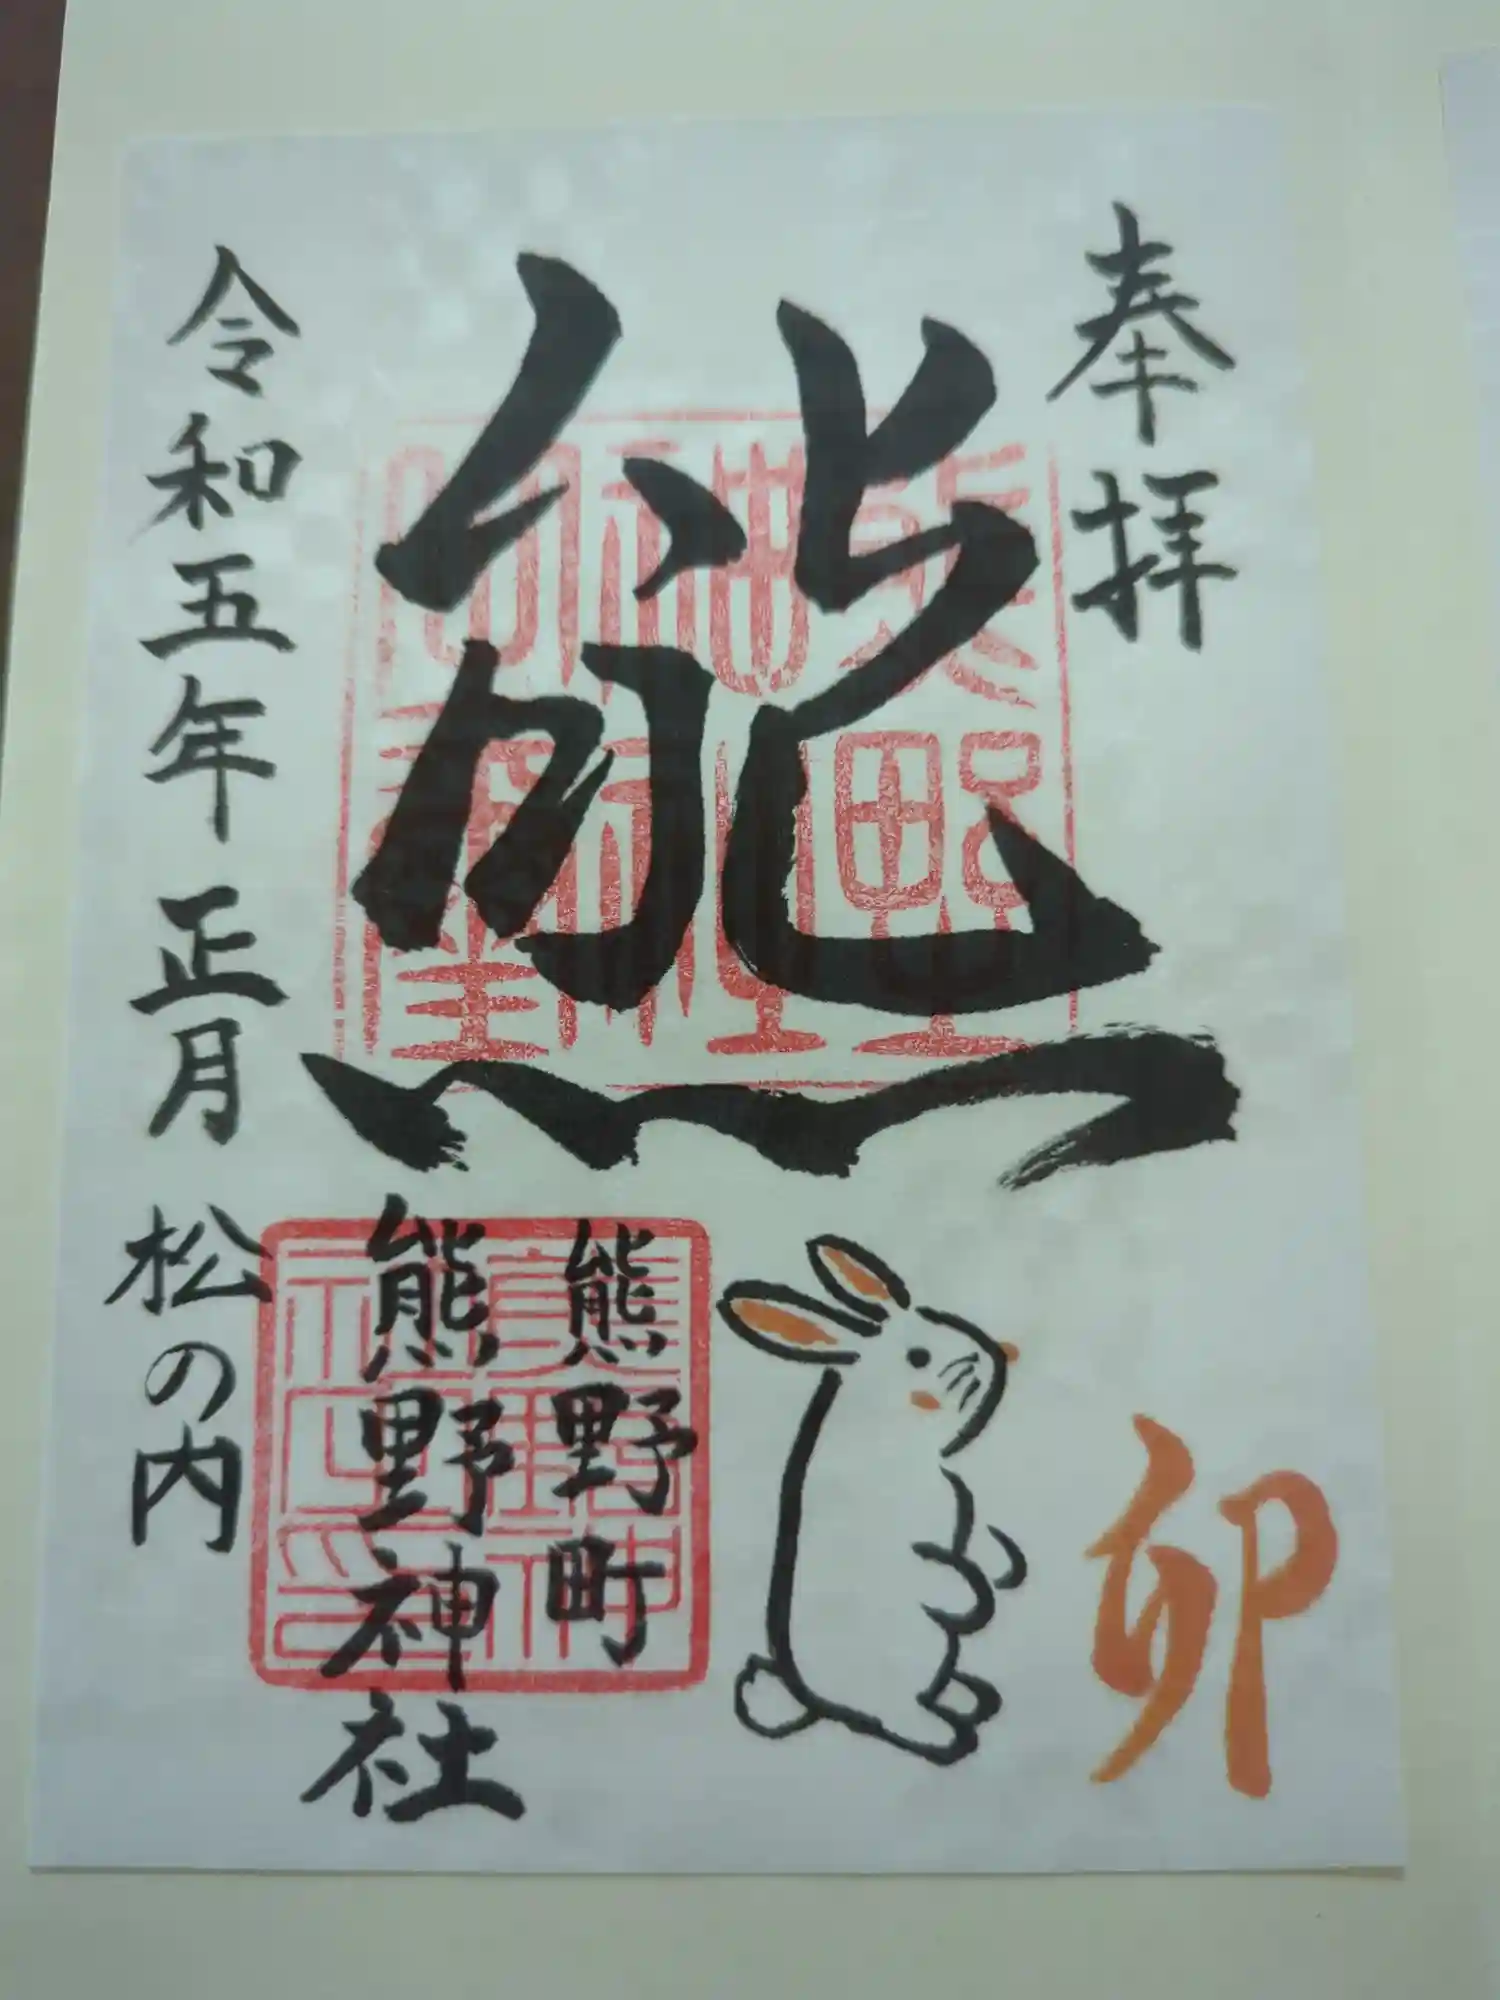 奉拝
卯
熊
熊野町
熊野神社
令和五年 正月 松の内